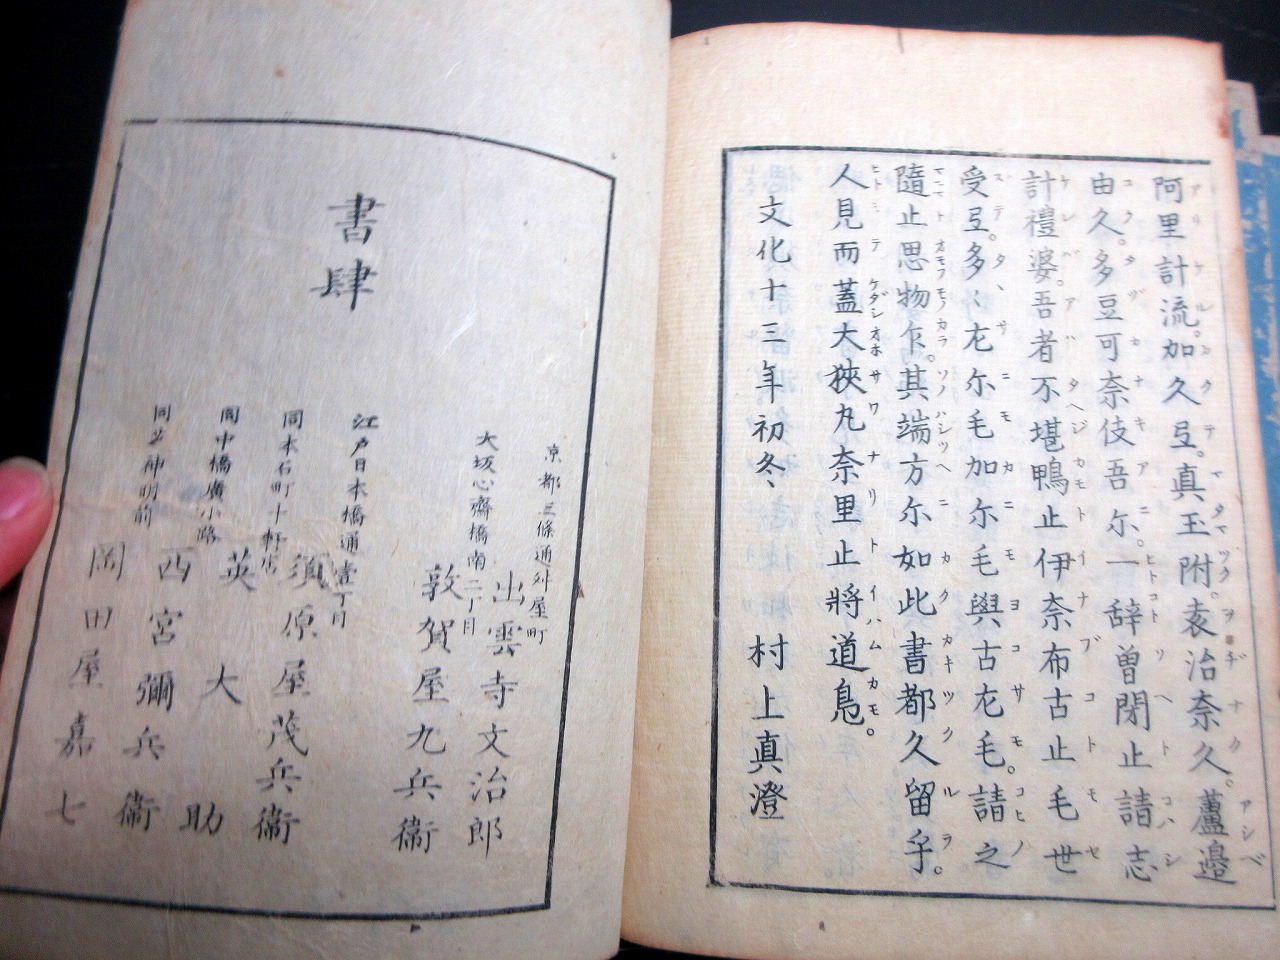 阿里計流。加久弖。真玉附。袁治奈久。蘆邉
由久。多豆可奈伎吾尓。一辞曽閇止請志
計禮婆。吾者不堪鴨止伊奈布古止毛世
受弖。多〻尓毛加尓毛與古左毛。請之
隨止思物乍。其端方尓如此書都久留乎。
人見而蓋大狹丸奈里止將道鳬。
文化十三年初冬 村上真澄
書肆
京都三條通舛屋町
出雲寺文治郎
大坂心齋橋南二丁目
敦賀屋九兵衞
江戸日本橋通壹丁目
須原屋茂兵衞
同本石町十軒店
英大助
同中橋廣小路
西宮彌兵衞
同芝神明前
岡田屋嘉七